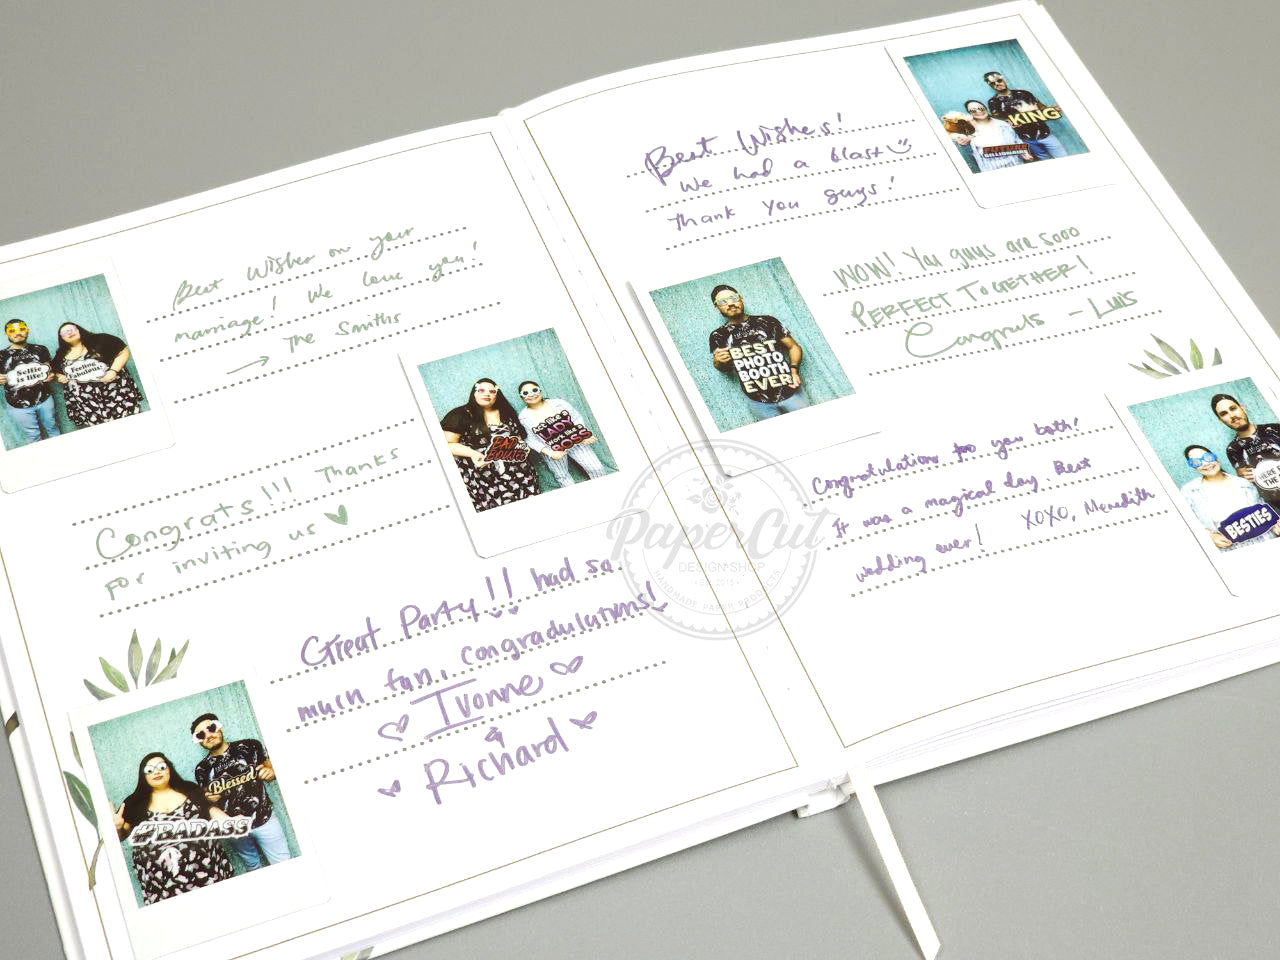 Best Wishes on your
marriage! We love you!
→ The Smiths
Selfie
is life!
Feeling
Fabulous!
BAD
AND
BOUJEE
Act like a
LADY
Work like a
BOSS
Congrats!!! Thanks
for inviting us ♥
Great Party!! had so
much fun, congradulations!
Ivonne
&
Richard
Blessed
#BADASS
Best Wishes!
We had a blast
Thank you guys!
KING
FUTURE
BILLIONAIRE
WOW! You guys are sooo
PERFECT TOGETHER!
Congrats - Luis
BEST
PHOTO
BOOTH
EVER
Congratulations to you both!
It was a magical day. Best
wedding ever! XOXO, Meredith
BESTIES
HERE
THE
PaperCut
DESIGN SHOP
EST. 2015
HANDMADE PAPER PRODUCTS